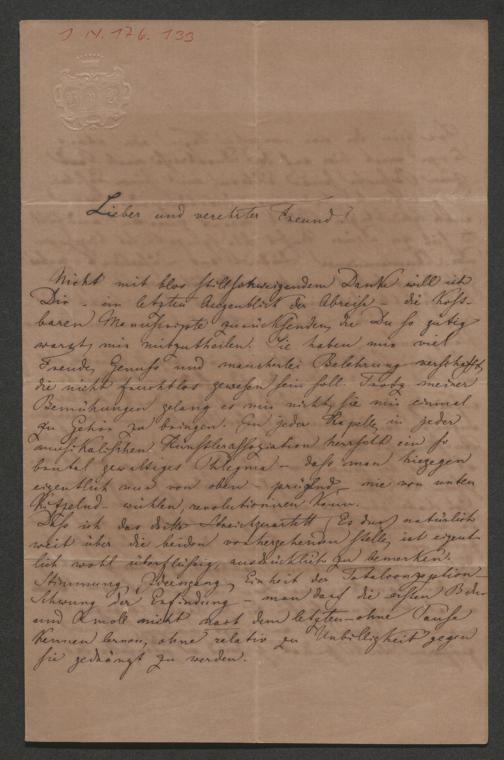 I. N. 176.133
Lieber und verehrter Freund!
Nicht mit blos stillschweigendem Danke will ich
Dir – im letzten Augenblick der Abreise – die kost-
baren Manuscripte zurücksenden, die Du so gütig
warst, mir mitzutheilen. Sie haben mir viel
Freude, Genuß und mancherlei Belehrung verschafft,
die nicht fruchtlos gewesen sein soll. Trotz meiner
Bemühungen gelang es mir nicht, sie mir einmal
zu Gehör zu bringen. In jeder Kapelle, in jeder
musikalischen Künstlerassoziation herrscht ein so
brutal gewaltiges Phlegma – daß man hiegegen
eigentlich nur von oben – – nie von unten
kitzelnd – wühlen, revolutioniren kann.
Daß ich das dritte Streichquartett, Es dur natürlich
weit über die beiden vorhergehenden stelle, ist eigent-
lich wohl überflüssig, ausdrücklich zu bemerken.
Stimmung, Ideengang, Einheit der Totalconzeption –
Schwung der Erfindung – man darf die ersten B dur
und A moll nicht nach dem letzten – ohne Pause
kennen lernen, ohne relativ zu Unbilligkeit gegen
sie gedrängt zu werden.